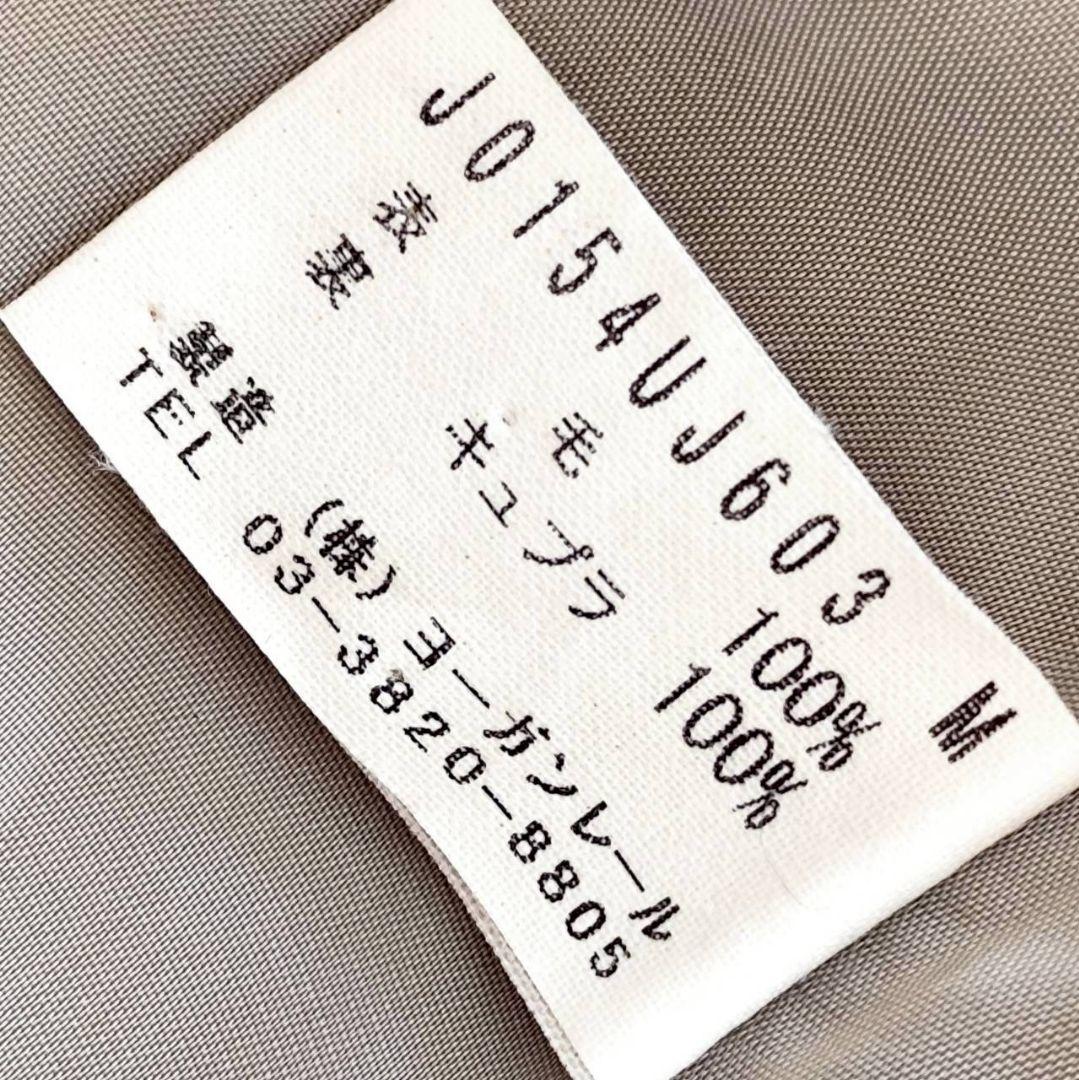 J0154UJ603 M
表 毛 100%
裏 キュプラ 100%
製造 (株)ヨーガンレール
TEL 03-3820-8805